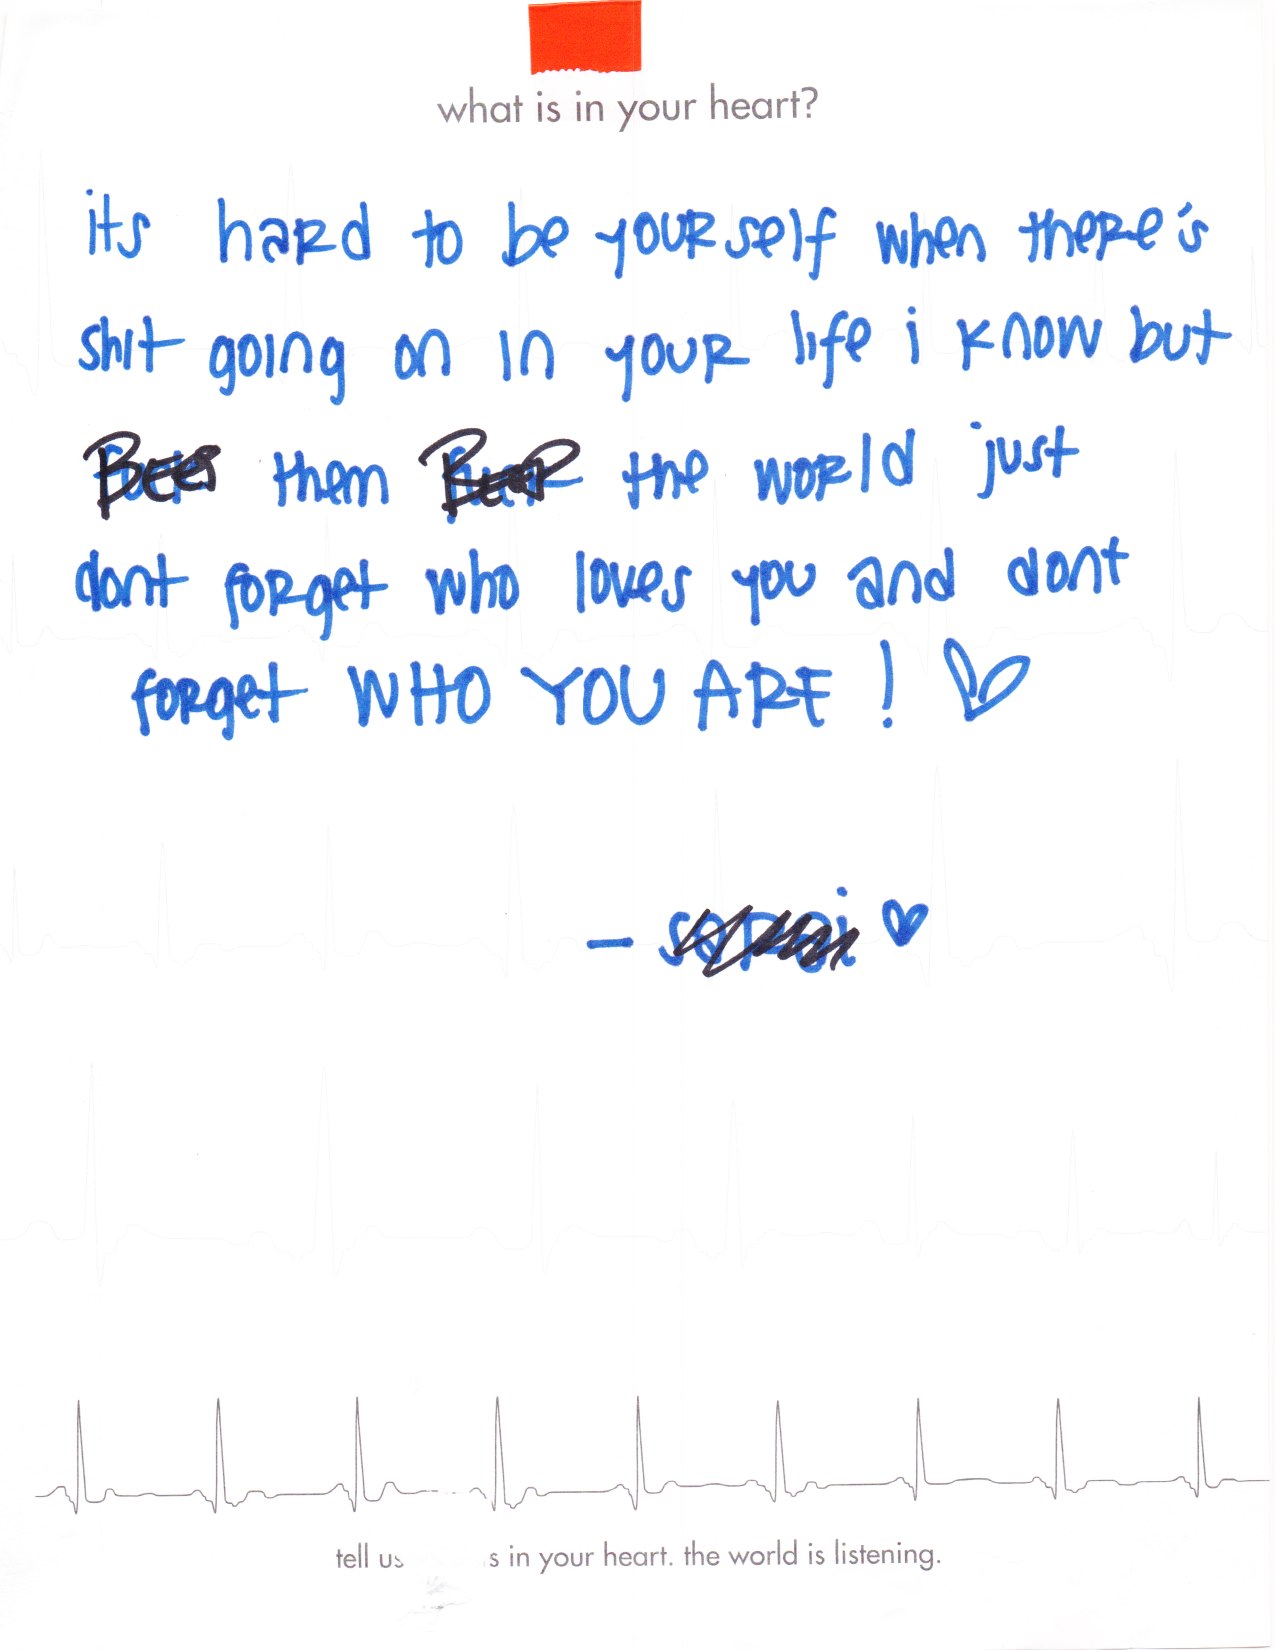 what is in your heart?
its hard to be yourself when there's
shit going on in your life i know but
BEES them BEER the world just
dont forget who loves you and dont
forget WHO YOU ARE!
-
tell us s in your heart. the world is listening.